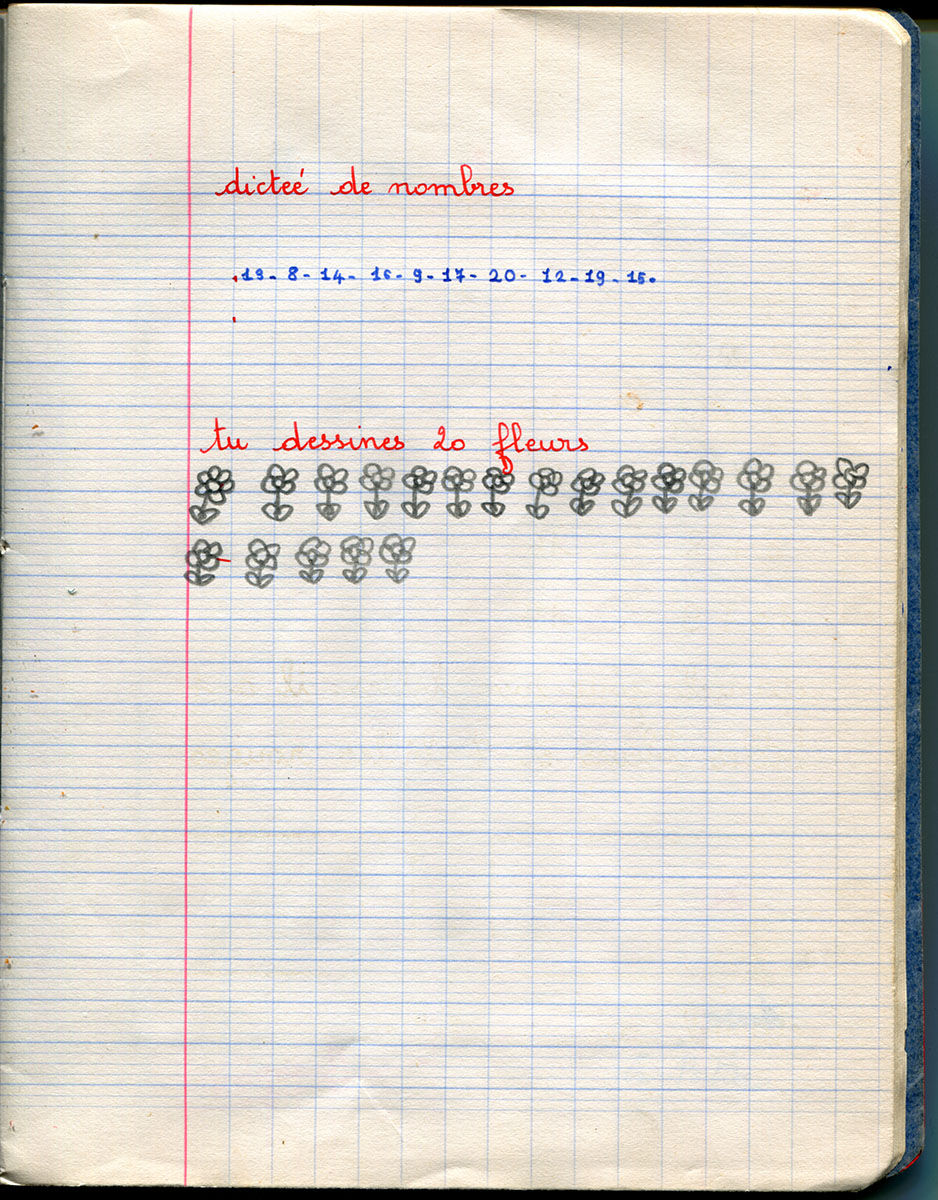 dicteé de nombres
13 - 8 - 14 - 16 - 9 - 17 - 20 - 12 - 19 - 15.
tu dessines 20 fleurs